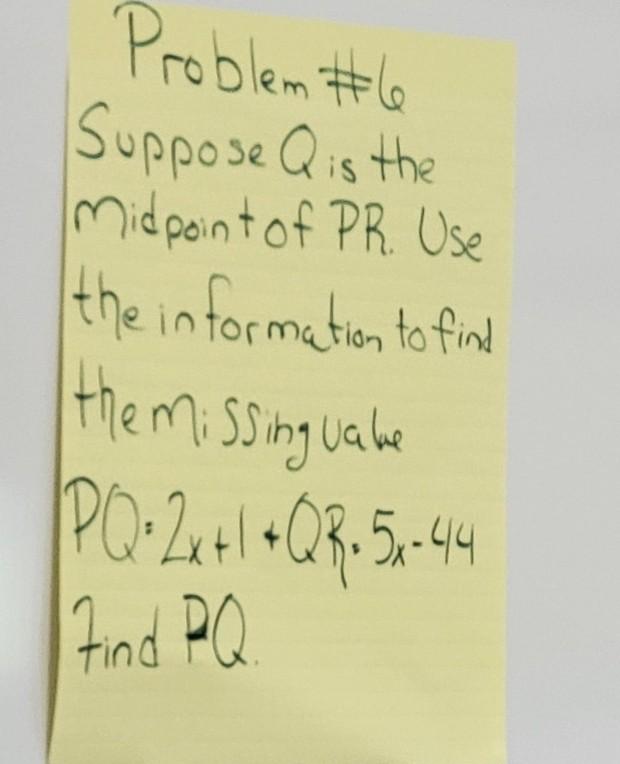 Problem #6
Suppose Q is the
midpoint of PR. Use
the information to find
the missing value
PQ=2x+1 + QR=5x-44
Find PQ.